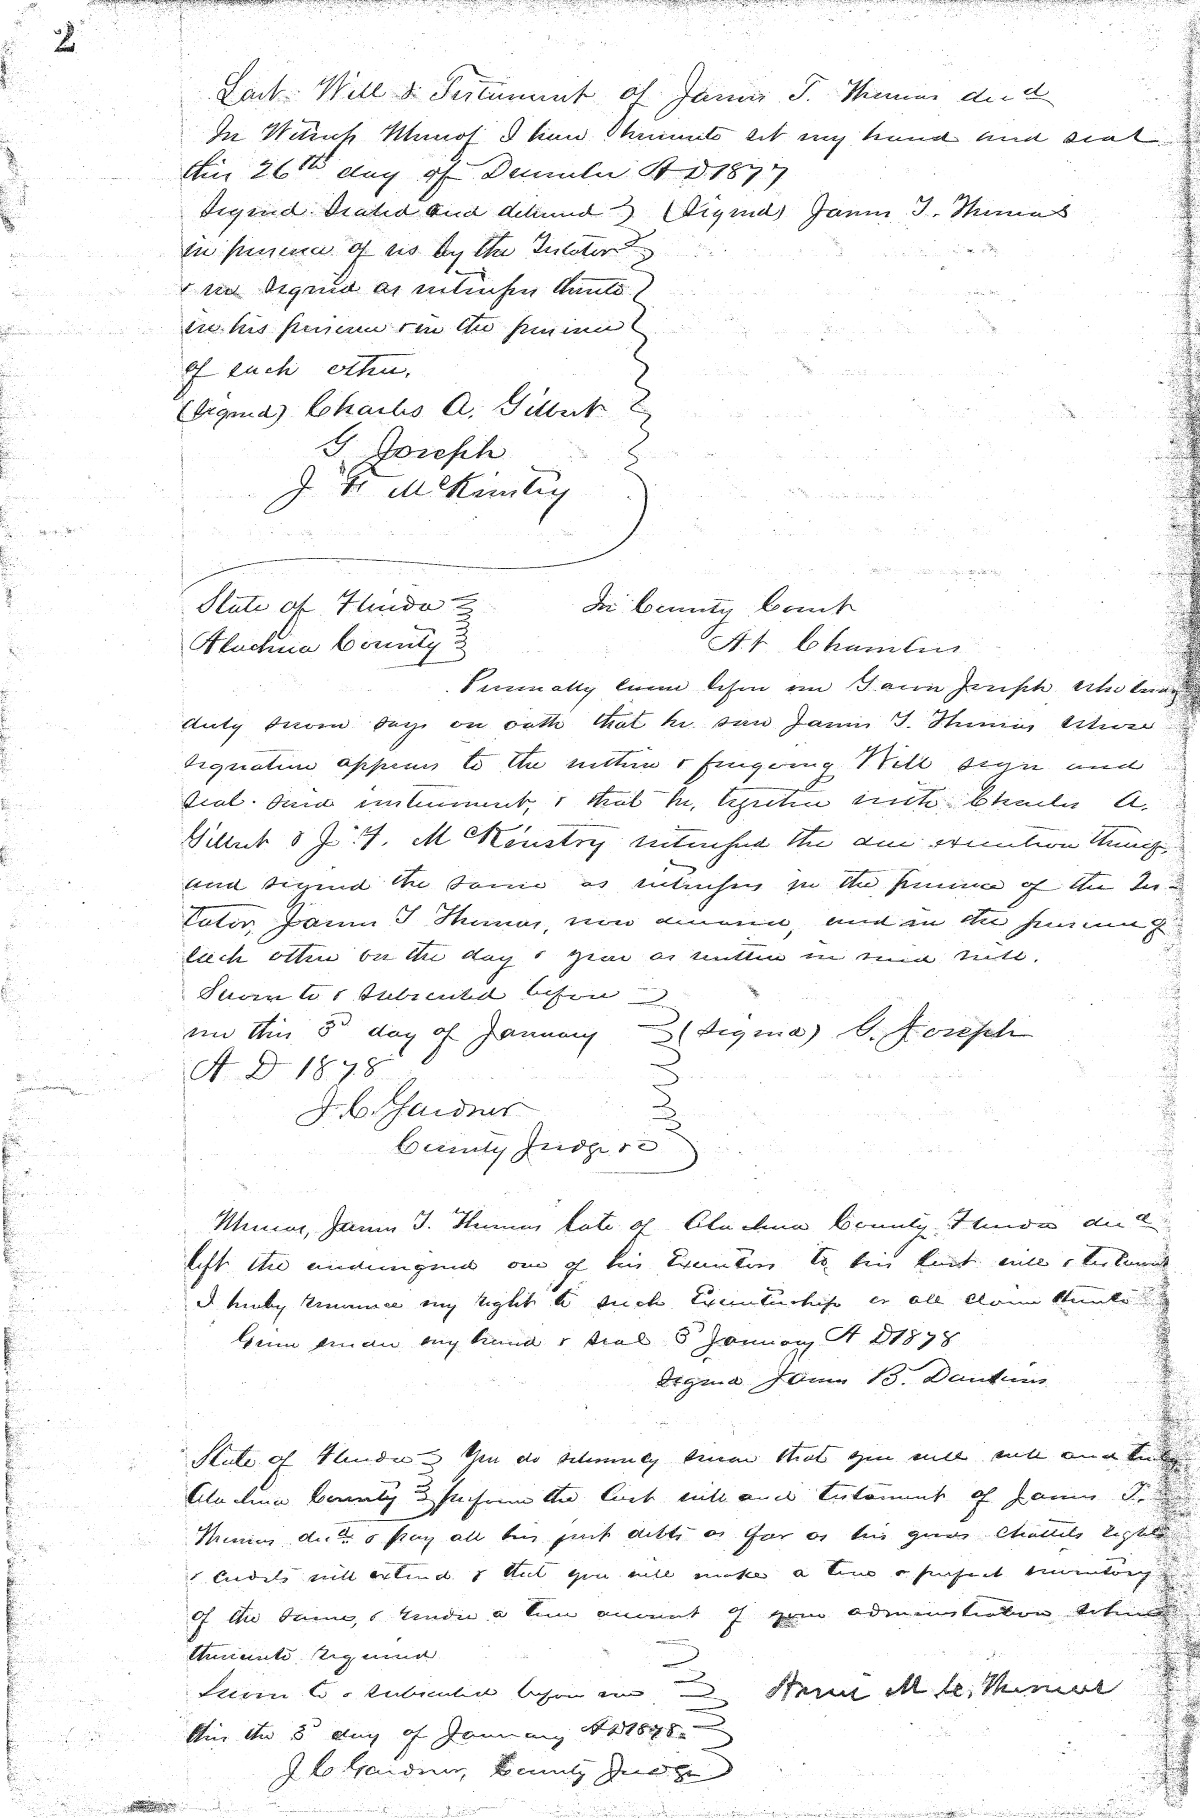 2
Last Will & Testament of James T. Thomas decd
In Witness Whereof I have hereunto set my hand and seal
this 26th day of December A D 1877
Signed Sealed and delivered (Signed) James T. Thomas
in presence of us by the Testator
& we signed as witnesses thereto
in his presence & in the presence
of each other.
(Signed) Charles A. Gilbert
G Joseph
J F McKinstry
State of Florida In County Court
Alachua County At Chambers
Personally came before me Joseph who being
duly sworn says on oath that he saw James T. Thomas whose
signature appears to the within & foregoing Will sign and
seal said instrument, & that he, together with Charles A.
Gilbert & J. F. McKinstry witnessed the due execution thereof,
and signed the same as witnesses in the presence of the Tes-
tator, James T Thomas, now deceased, and in the presence of
each other on the day & year as written in said will.
Sworn to & subscribed before
me this 5 day of January (Signed) G. Joseph
A D 1878
J. C. Gardner
County Judge
Whereas, James T. Thomas late of Alachua County Florida decd
left the undersigned one of his Executors to his last will & testament
I hereby renounce my right to such Executorship or all claim thereto
Given under my hand & seal 5 January A D 1878
Signed James B. Dawkins
State of Florida You do solemnly swear that you will well and truly
Alachua County perform the last will and testament of James T.
Thomas decd & pay all his just debts as far as his goods chattels rights
& credits will extend & that you will make a true & perfect inventory
of the same, & render a true account of your administration when
thereunto required
Sworn to & subscribed before me M Thomas
this the 5 day of January A D 1878.
J C Gardner, County Judge